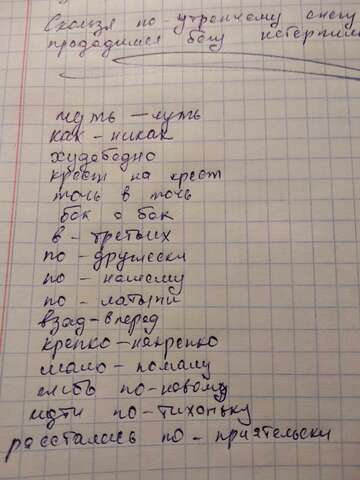 Скользя по-утреннему снегу
предадимся бегу нетерпели
чуть-чуть
как-никак
худобедно
крест на крест
точь в точь
бок о бок
в-третьих
по-дружески
по-нашему
по-латыни
взад-вперед
крепко-накрепко
мало-помалу
жить по-новому
идти по-тихоньку
расстались по-приятельски